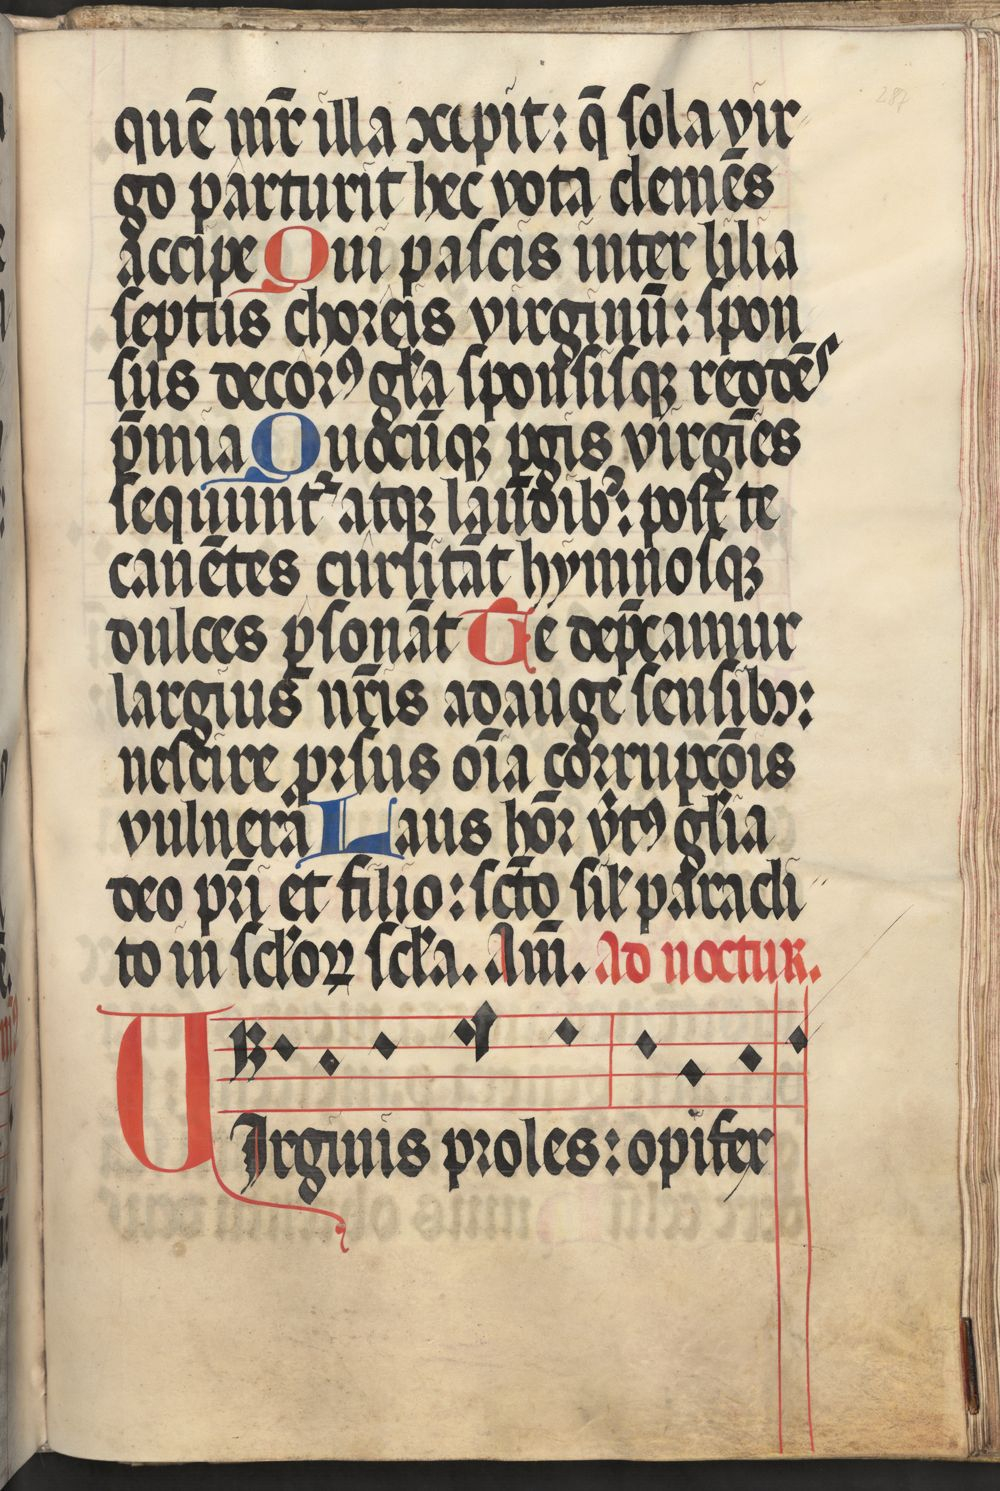 quē mr̄ illa ꝯcipit: q̄ sola vir
go parturit hec vota clemēs
accipe Qui pascis inter lilia
septus choreis virginū: spon
sus decorꝰ gl̄a sponsisqꝫ reddēs
p̄mia Quocūqꝫ pgis virgīes
sequunt᷑ atqꝫ laudibꝰ: post te
canētes cursitāt hymnosqꝫ
dulces ꝑsonāt Te dep̄camur
largius nr̄is adauge sensibꝫ:
nescire prsus oīa corrupcōis
vulnera Laus hōr v̄tꝰ gl̄ia
deo pr̄i et filio: sc̄to sil̄ paracli
to in scl̄oꝝ scl̄a. Am̄. Ad noctur.
VIrginis proles: opifer
287